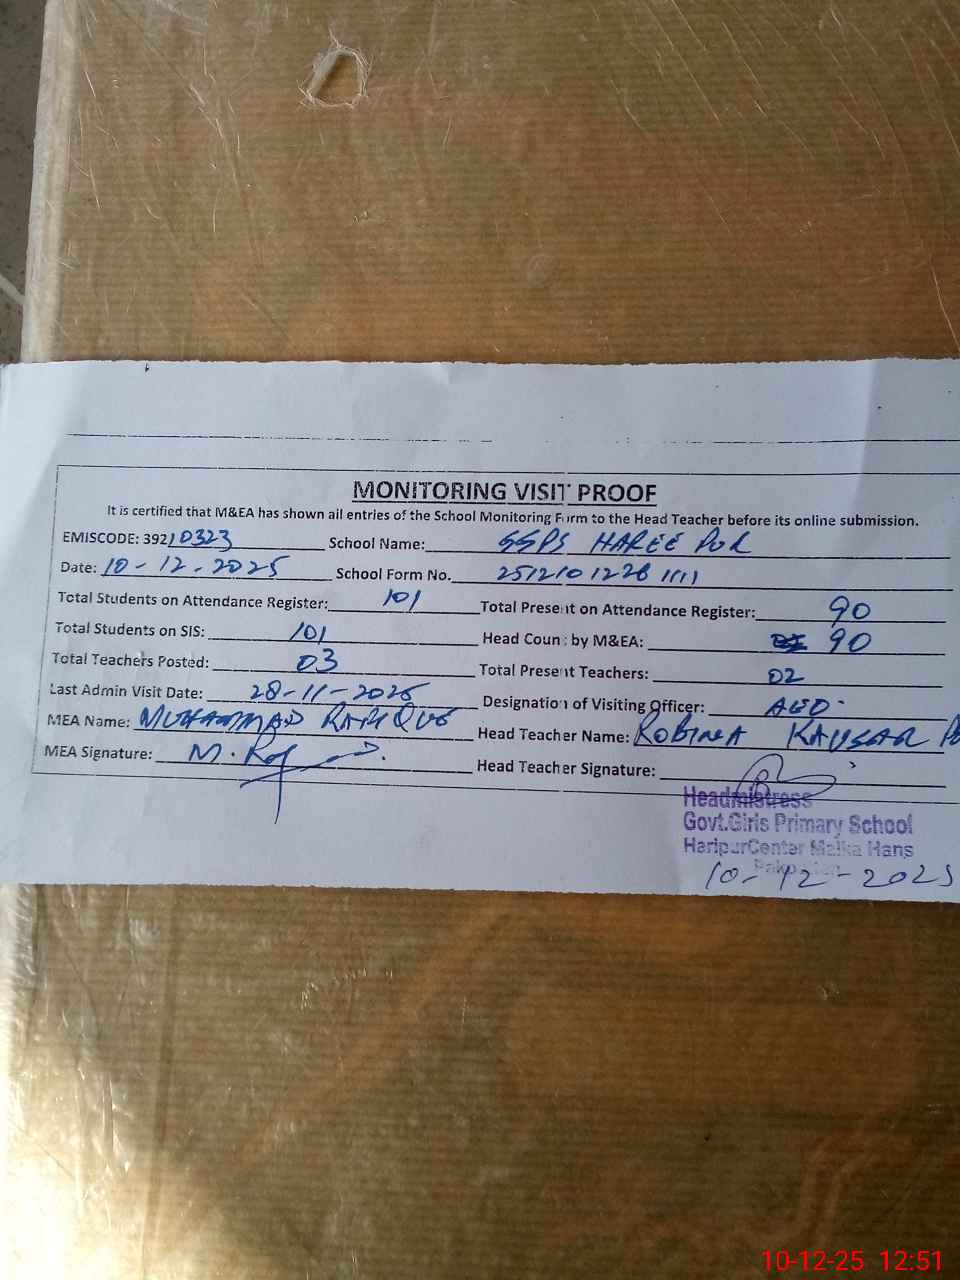 MONITORING VISIT PROOF
It is certified that M&EA has shown all entries of the School Monitoring Form to the Head Teacher before its online submission.
EMISCODE: 39210323 School Name: GGPS HAREE PUR
Date: 10-12-2025 School Form No. 2512101228 1111
Total Students on Attendance Register: 101 Total Present on Attendance Register: 90
Total Students on SIS: 101 Head Count by M&EA: 90
Total Teachers Posted: 03 Total Present Teachers: 02
Last Admin Visit Date: 28-11-2025 Designation of Visiting Officer: AEO
MEA Name: MUHAMMAD RAFIQUE Head Teacher Name: ROBINA KAUSAR
MEA Signature: Head Teacher Signature:
Headmistress
Govt.Girls Primary School
HaripurCenter Malka Hans
Pakpattan
10-12-2025
10-12-25 12:51